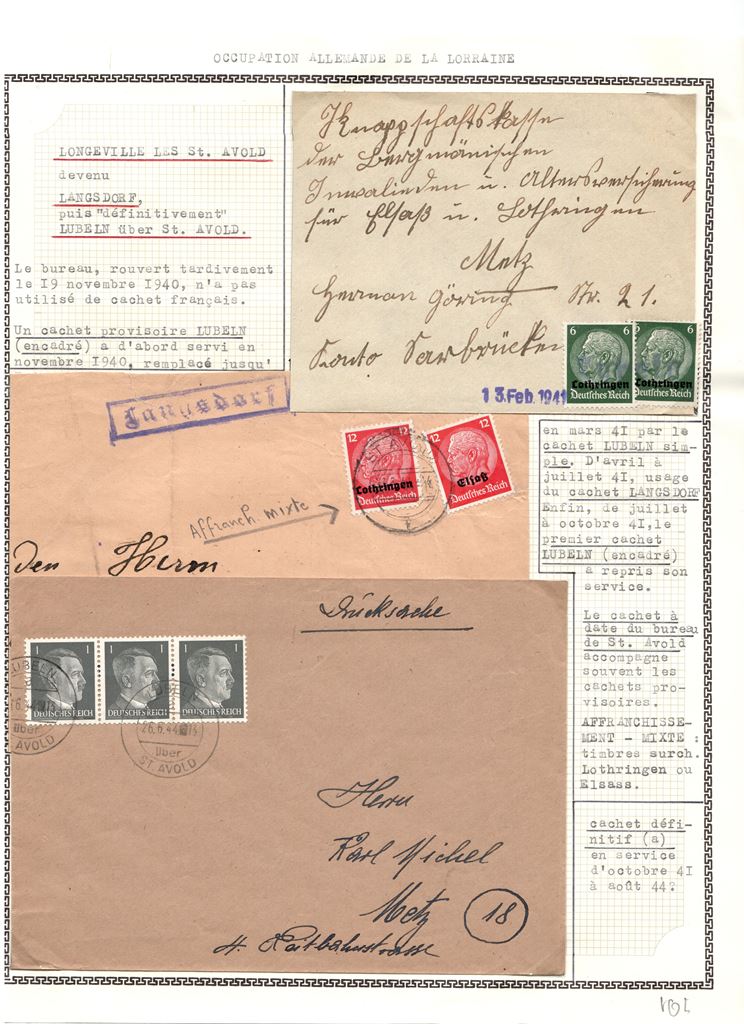 OCCUPATION ALLEMANDE DE LA LORRAINE
LONGEVILLE LES St. AVOLD
devenu
LANGSDORF,
puis "définitivement"
LUBELN über St. AVOLD.
Le bureau, rouvert tardivement
le I9 novembre I940, n'a pas
utilisé de cachet français.
Un cachet provisoire LUBELN
(encadré) a d'abord servi en
novembre I940, remplacé jusqu'
Knappschaftskasse
der Bergmänischen
Inwalieden u. Altersversicherung
für Elsaß u. Lothringen
Metz
Herman Göring Str. 21.
Konto Sarbrücken
6 6
Lothringen Lothringen
Deutsches Reich Deutsches Reich
13. Feb. 1941
Langsdorf
12 12 12
Lothringen Elsaß
Deutsches Reich Deutsches Reich
ST. AVOLD
Affranch. mixte
Den Herrn
en mars 4I par le
cachet LUBELN sim-
ple. D'avril à
juillet 4I, usage
du cachet LANGSDORF
Enfin, de juillet
à octobre 4I,le
premier cachet
LUBELN (encadré)
a repris son
service.
Le cachet à
date du bureau
de St. Avold
accompagne
souvent les
cachets pro-
visoires.
AFFRANCHISSE-
MENT - MIXTE :
timbres surch.
Lothringen ou
Elsass.
cachet défi-
nitif (a)
en service
d'octobre 4I
à août 44?
Drucksache
1 1 1 1 1
DEUTSCHES REICH DEUTSCHES REICH DEUTSCHES REICH
LUBELN
über
ST. AVOLD
LUBELN
26.6.44
über
ST. AVOLD
Herrn
Karl Michel
Metz 18